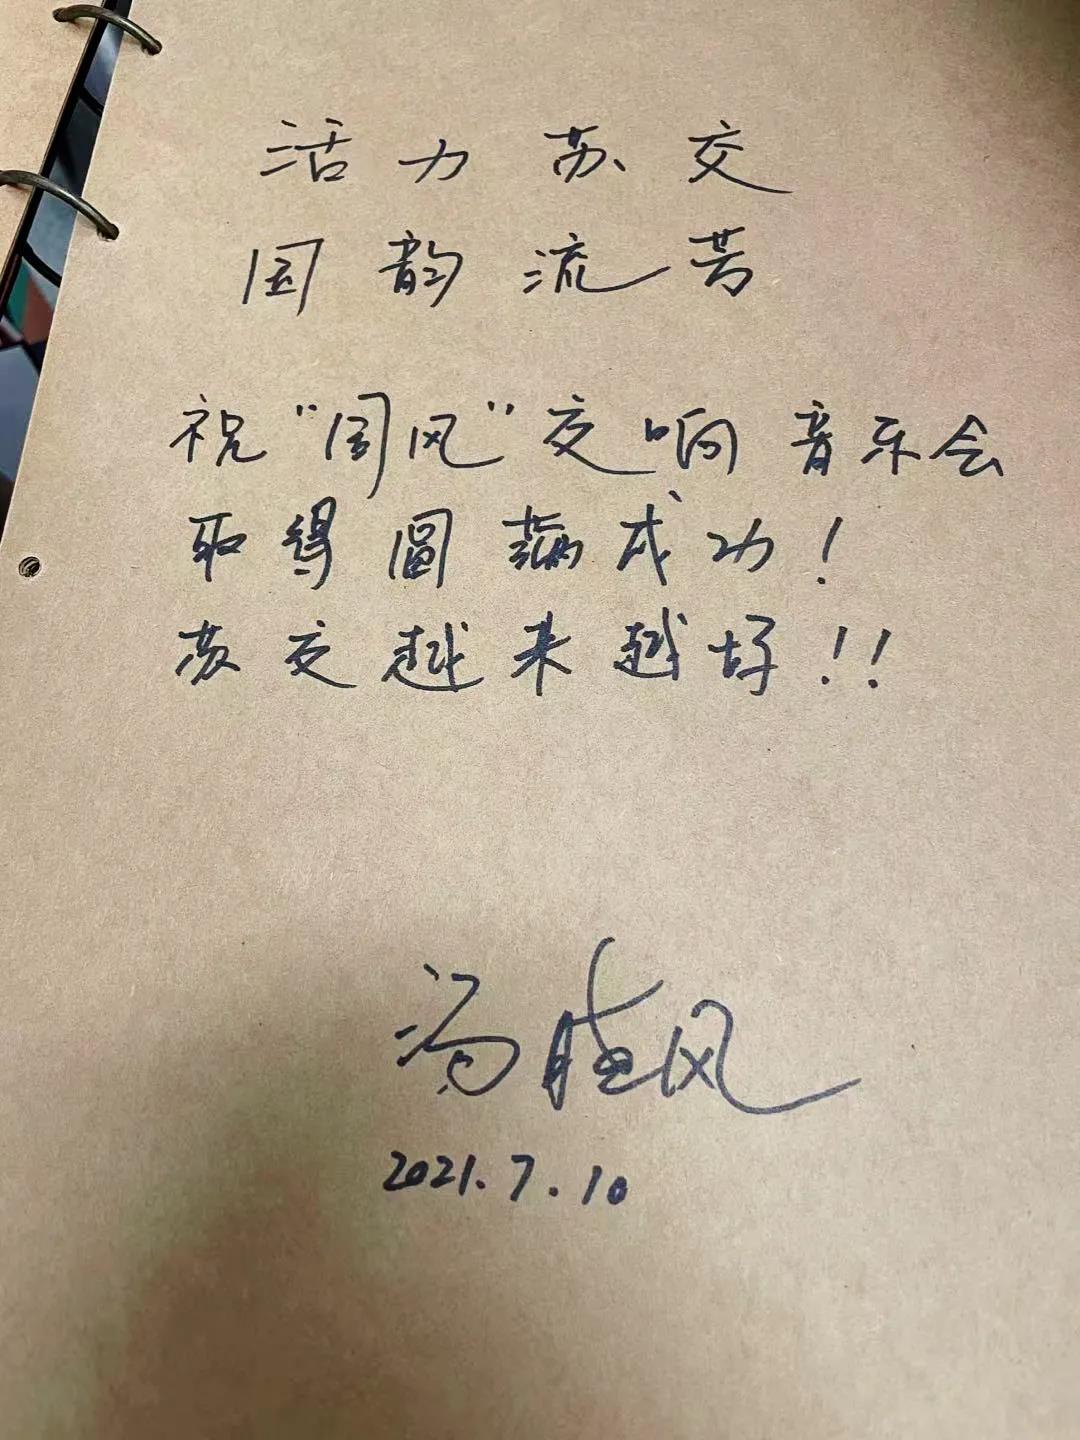 活力苏交
国韵流芳
祝“国风”交响音乐会
取得圆满成功！
苏交越来越好！！
冯晓风
2021.7.10